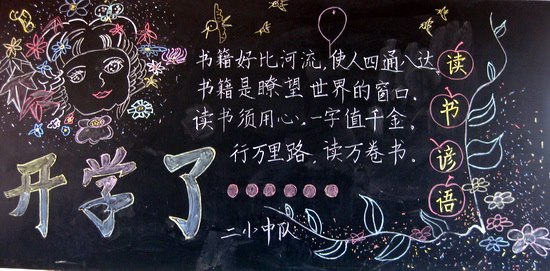 书籍好比河流，使人四通八达。
书籍是瞭望世界的窗口。
读书须用心，一字值千金。
行万里路，读万卷书。
读书谚语
开学了
二小中队